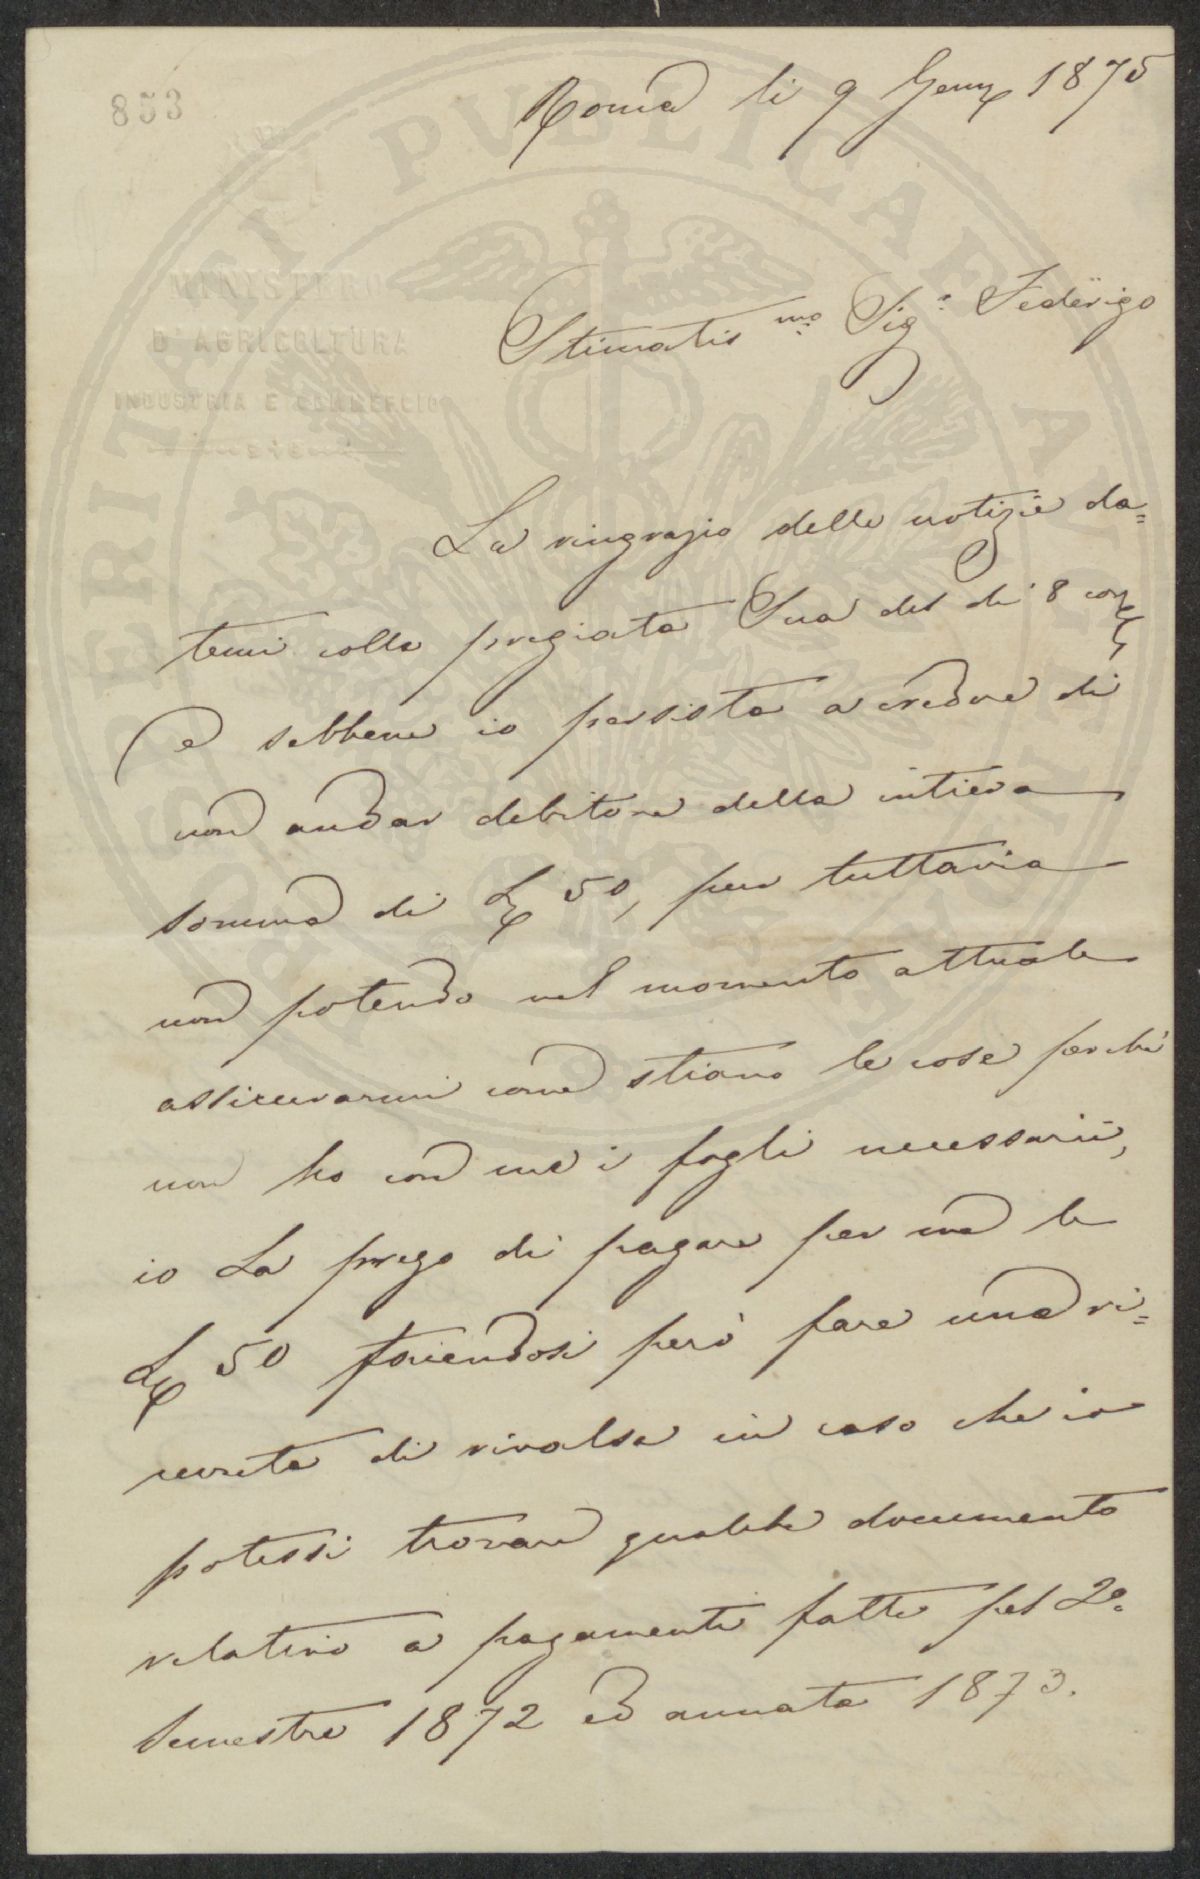 853
Roma li 9 Genn 1875
MINISTERO
D'AGRICOLTURA
INDUSTRIA E COMMERCIO
Stimatis.mo Sig.r Federigo
La ringrazio delle notizie da=
temi colla pregiata Sua del dì 8 corr
e sebbene io persista a credere di
non andar debitore della intiera
somma di L 50, pur tuttavia
non potendo nel momento attuale
assicurarmi come stiano le cose perchè
non ho con me i fogli necessarii,
io La prego di pagare per me le
L 50 facendosi però fare una ri=
cevuta di rivalsa in caso che io
potessi trovare qualche documento
relativo a pagamenti fatti pel 2°
semestre 1872 ed annata 1873.
PERITATI PUBLICAE